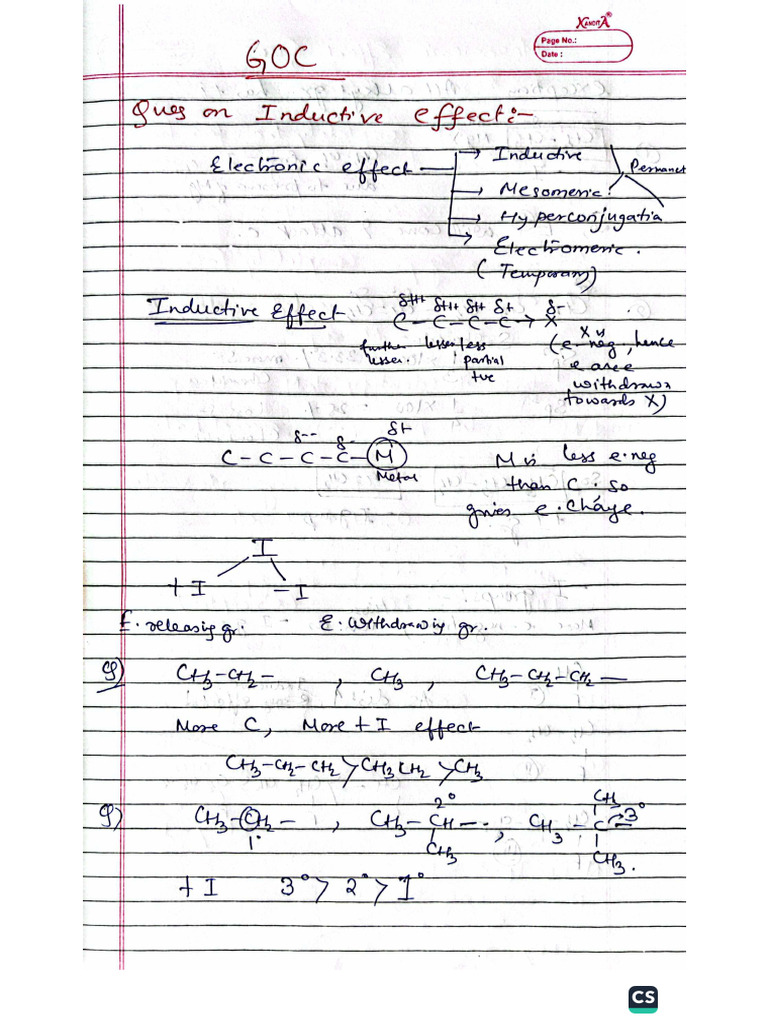 XANDITA®
Page No.:
Date :
GOC
Ques on Inductive effect:-
Electronic effect → Inductive
→ Mesomeric
Permanet
→ Hyperconjugatia
→ Electromeric.
(Temporary)
Inductive Effect
δ+++ δ+++ δ++ δ+ δ-
C - C - C - C → X
further lesser
lesser
less partial +ve
(X is e.neg, hence e are withdrawn towards X)
δ-- δ- δ+
C - C - C - C - M
Metal
M is less e.neg
than C. so
gives e. charge.
I
+I -I
E.releasing gr. E.withdrawing gr.
Q) CH3-CH2- , CH3 , CH3-CH2-CH2-
More C, More +I effect
CH3-CH2-CH2 > CH3CH2 > CH3
Q) CH3-CH2- , CH3-CH- , CH3-C-
1° 2° 3°
CH3 CH3 CH3.
+I 3° > 2° > 1°
CS